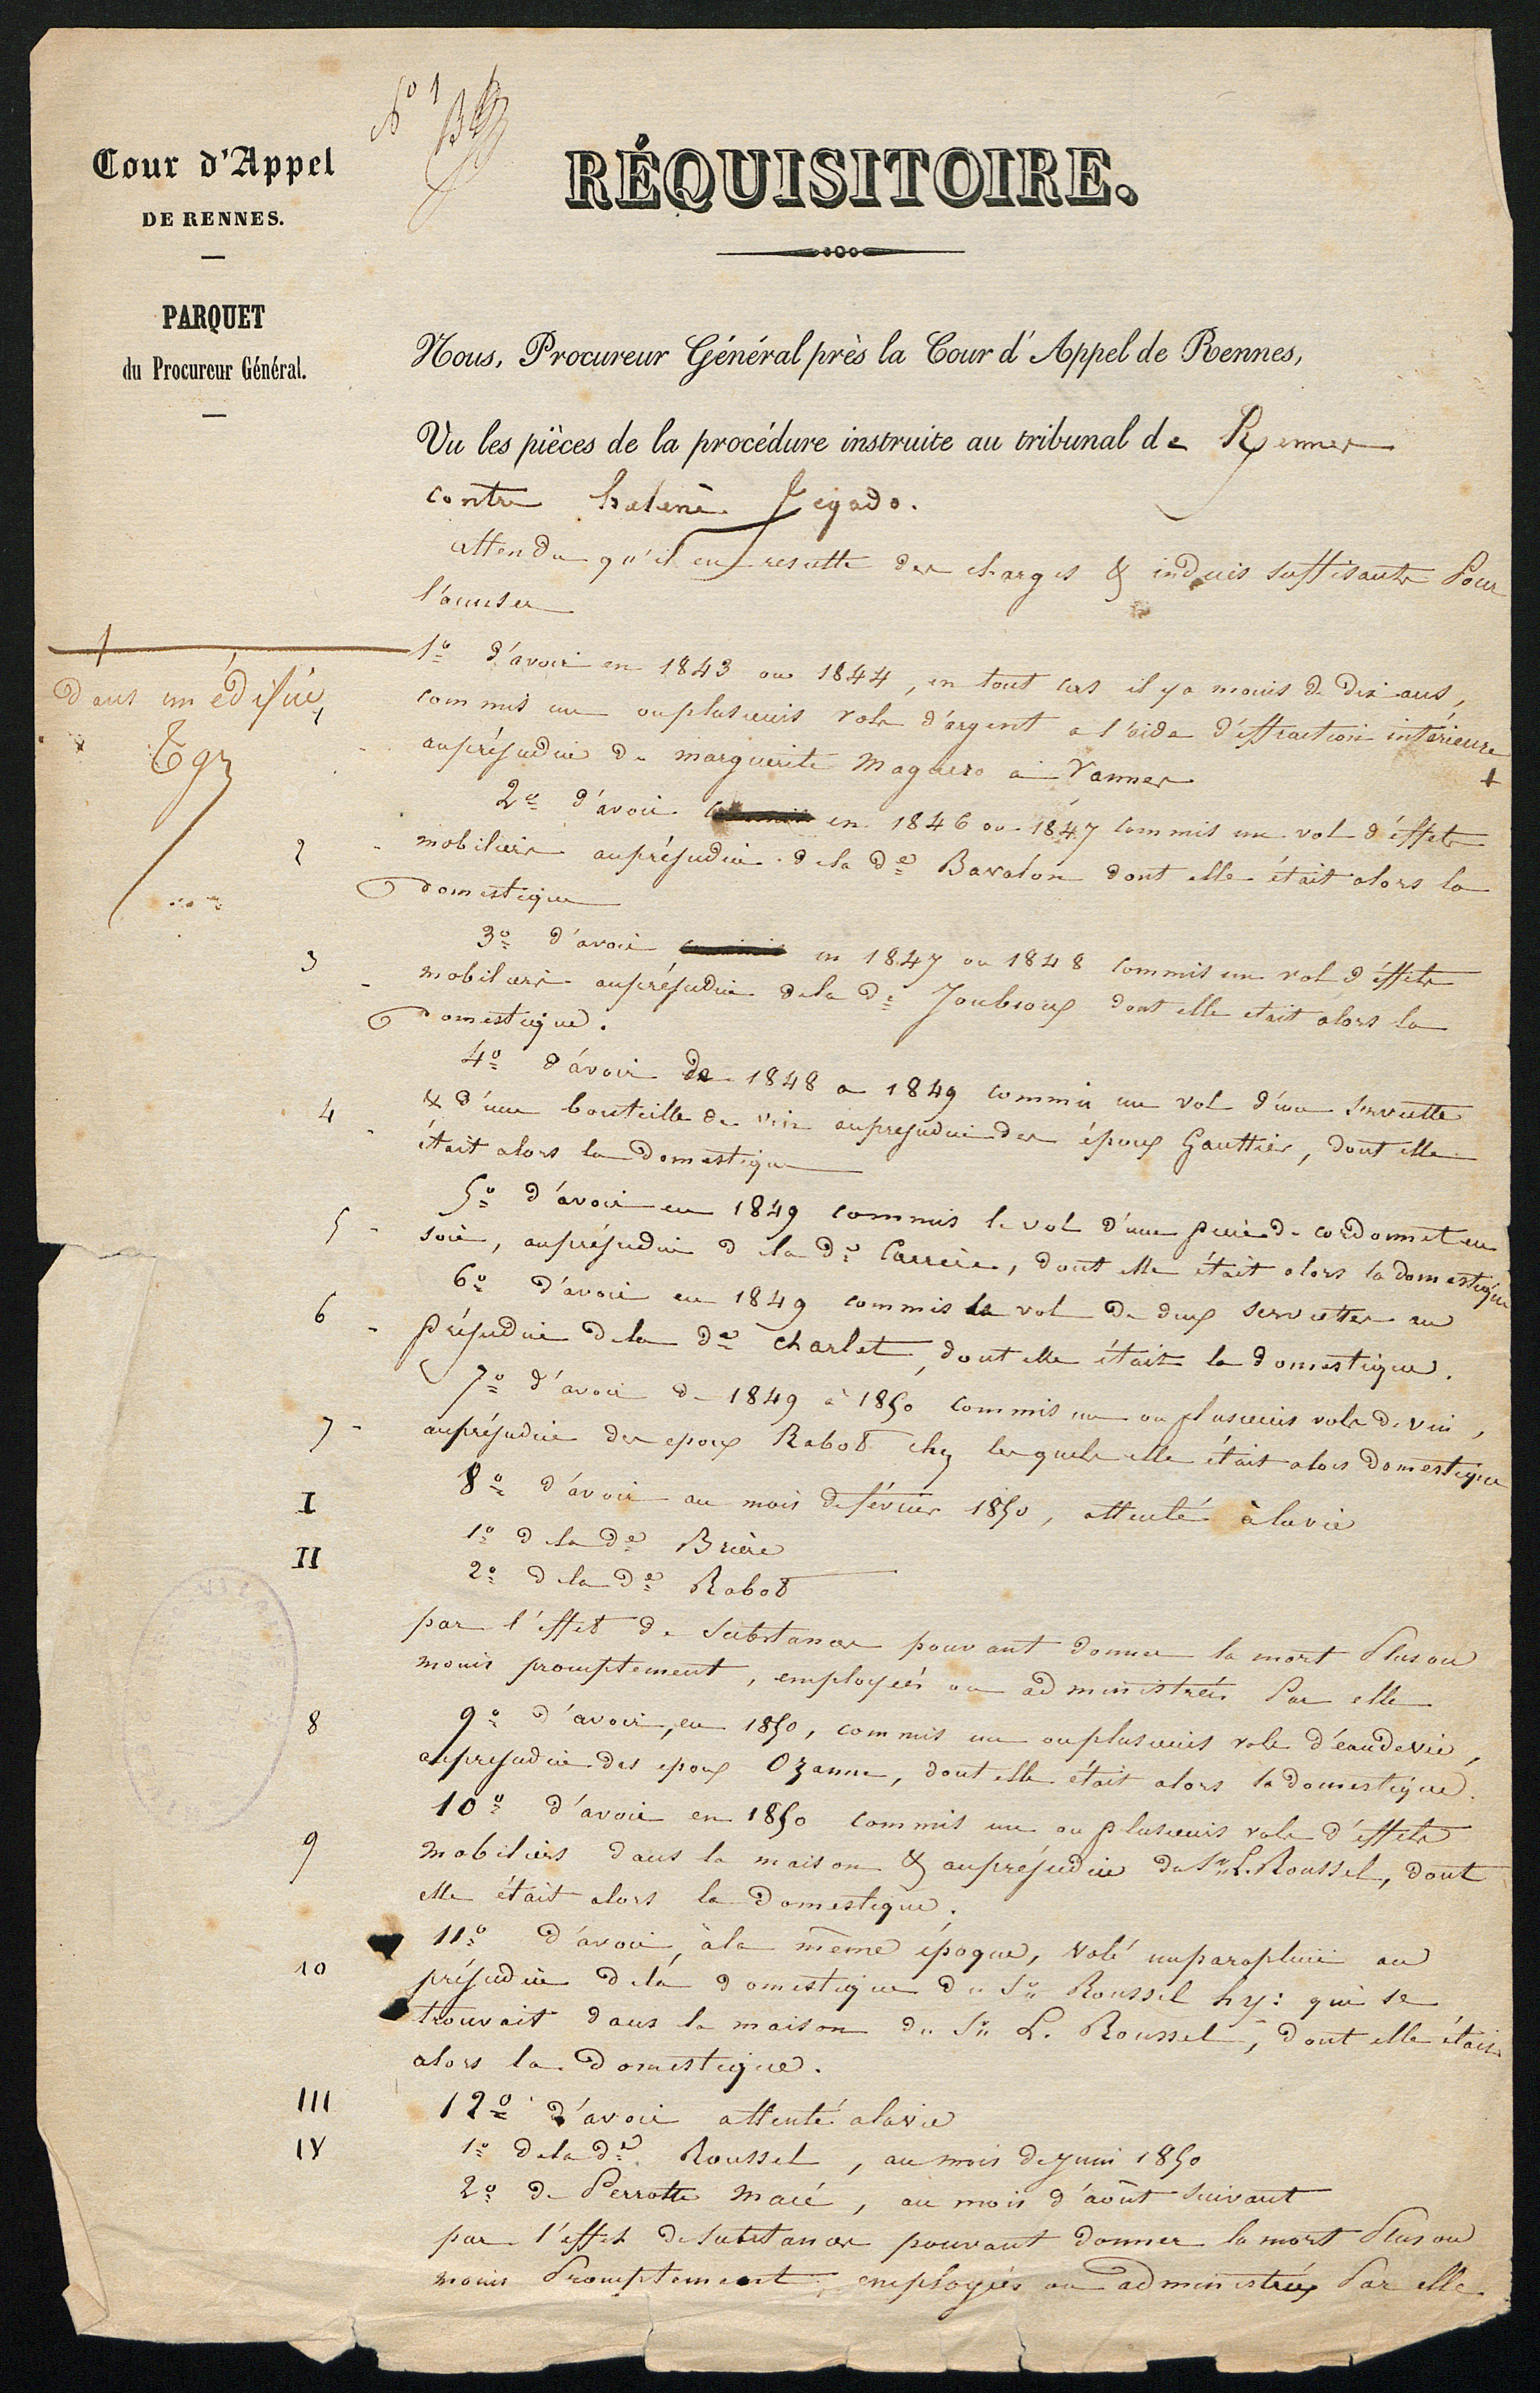 N° 1
Cour d'Appel
DE RENNES.
PARQUET
du Procureur Général.
RÉQUISITOIRE.
Nous, Procureur Général près la Cour d'Appel de Rennes,
Vu les pièces de la procédure instruite au tribunal de Rennes
contre helène Jegado.
attendu qu'il en resulte des charges & indices suffisants Pour
l'accuser
1° d'avoir en 1843 ou 1844, en tout cas il y a moins de dix ans,
commis un ou plusieurs vols d'argent a l'aide d'effraction intérieure
+
dans un édifice,
au préjudice de marguerite Maguero à Vannes
2° d'avoir en 1846 ou 1847 commis un vol d'effets
2
mobiliers au préjudice de la de Bavalon dont elle était alors la
domestique
3° d'avoir en 1847 ou 1848 commis un vol d'effets
3
mobiliers au préjudice de la de Joubioux dont elle etait alors la
domestique.
4° d'avoir de 1848 a 1849 commis un vol d'une serviette
4
& d'une bouteille de vin au prejudice des époux Gauttier, dont elle
était alors la domestique
5° d'avoir en 1849 commis le vol d'une pièce de cordonnet en
5
soie, au préjudice de la de Carrère, dont elle était alors la domestique
6° d'avoir en 1849 commis le vol de deux serviettes au
6
préjudice de la de Charlet, dont elle était la domestique.
7° d'avoir de 1849 à 1850 commis un ou plusieurs vols de vin,
7
au préjudice des epoux Rabot chez lesquels elle était alors domestique
8° d'avoir au mois de février 1850, attenté à la vie
I
1° de la de Brière
II
2° de la de Rabot
par l'effet de substances pouvant donner la mort Plus ou
moins promptement, employées ou administrées Par elle
8
9° d'avoir, en 1850, commis un ou plusieurs vols d'eau de vie,
au prejudice des epoux Ozanne, dont elle était alors la domestique.
10° d'avoir en 1850 commis un ou plusieurs vols d'effets
9
mobiliers dans la maison & au préjudice du Sr L. Roussel, dont
elle était alors la domestique.
11° d'avoir, à la même époque, volé un parapluie au
10
préjudice de la domestique du Sr Roussel hy: qui se
trouvait dans la maison du Sr L. Roussel, dont elle était
alors la domestique.
III
12° d'avoir attenté a la vie
IV
1° de la de Roussel, au mois de juin 1850
2° de Perrotte Macé, au mois d'août suivant
par l'effet de substances pouvant donner la mort Plus ou
moins Promptement, employées ou administrées Par elle